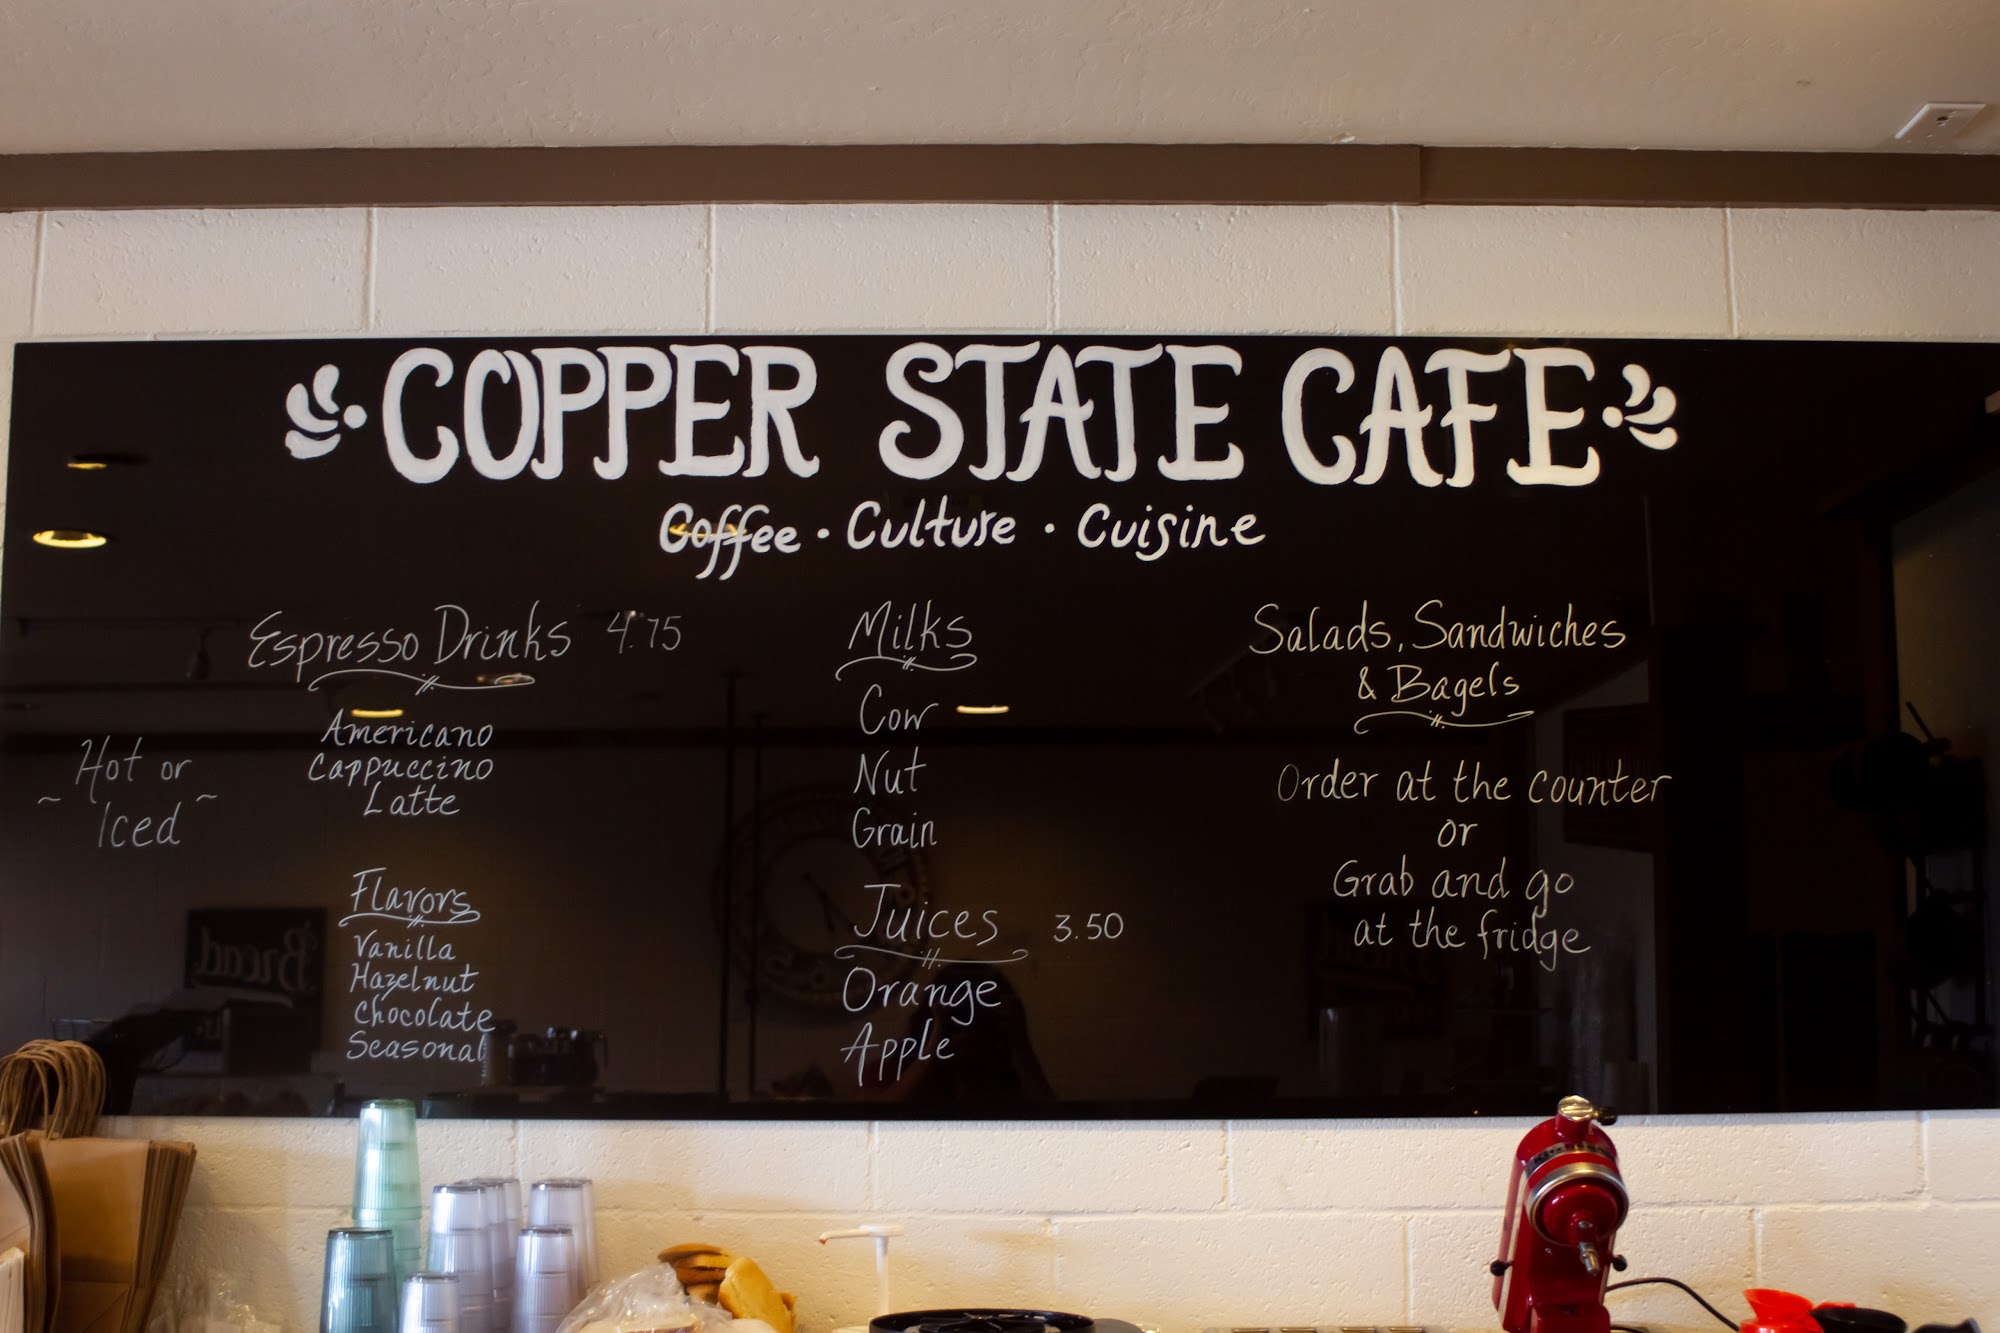 COPPER STATE CAFE
Coffee · Culture · Cuisine
Espresso Drinks 4.75
Hot or
~ Iced ~
Americano
Cappuccino
Latte
Flavors
Vanilla
Hazelnut
Chocolate
Seasonal
Milks
Cow
Nut
Grain
Juices 3.50
Orange
Apple
Salads, Sandwiches
& Bagels
Order at the counter
or
Grab and go
at the fridge
Bread